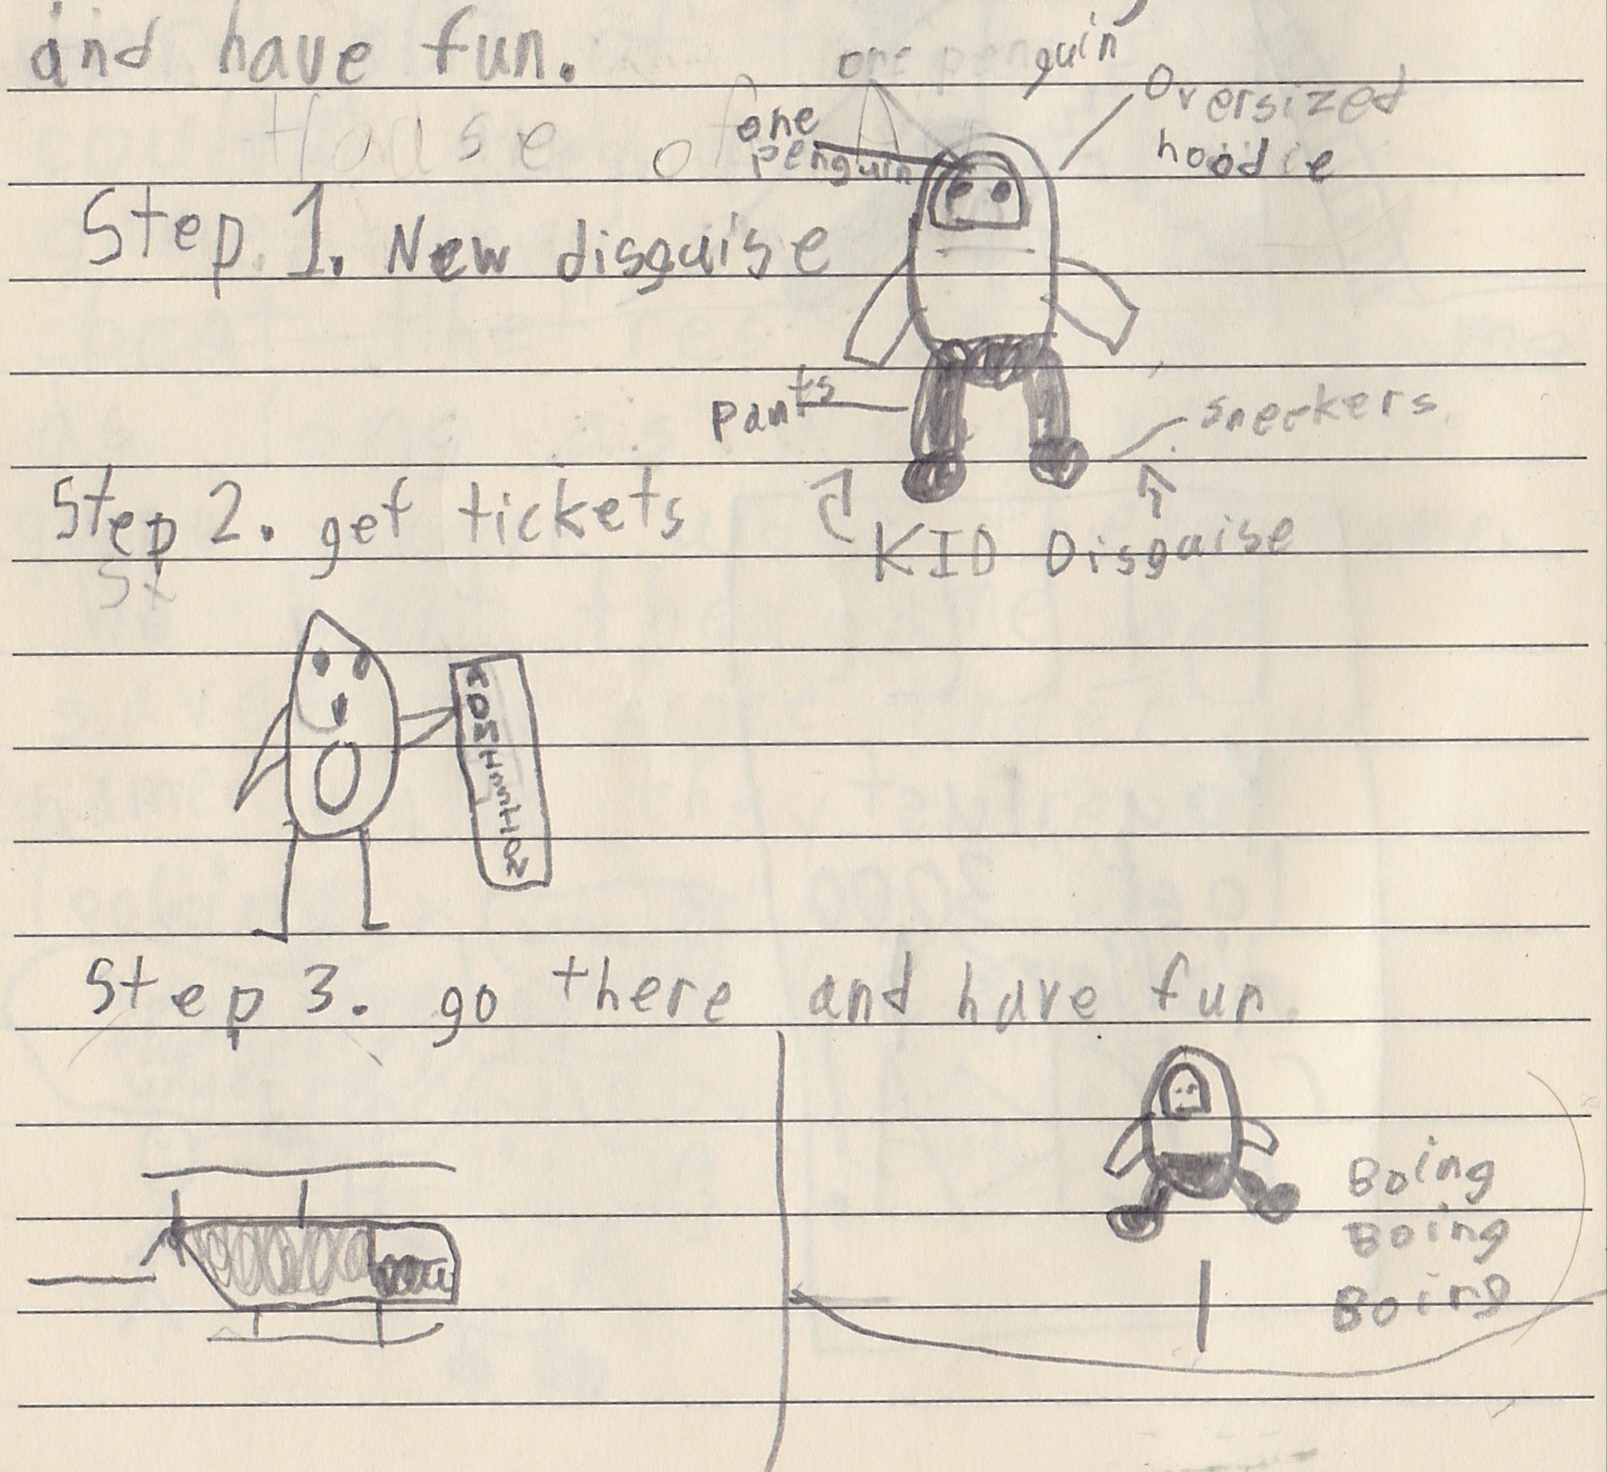 and have fun.
one penguin
Oversized
hoodie
House of
one
penguin
Step 1. New disguise
pants
sneekers
Step 2. get tickets
KID Disguise
St
Step 3. go there and have fun.
Boing
Boing
Boing